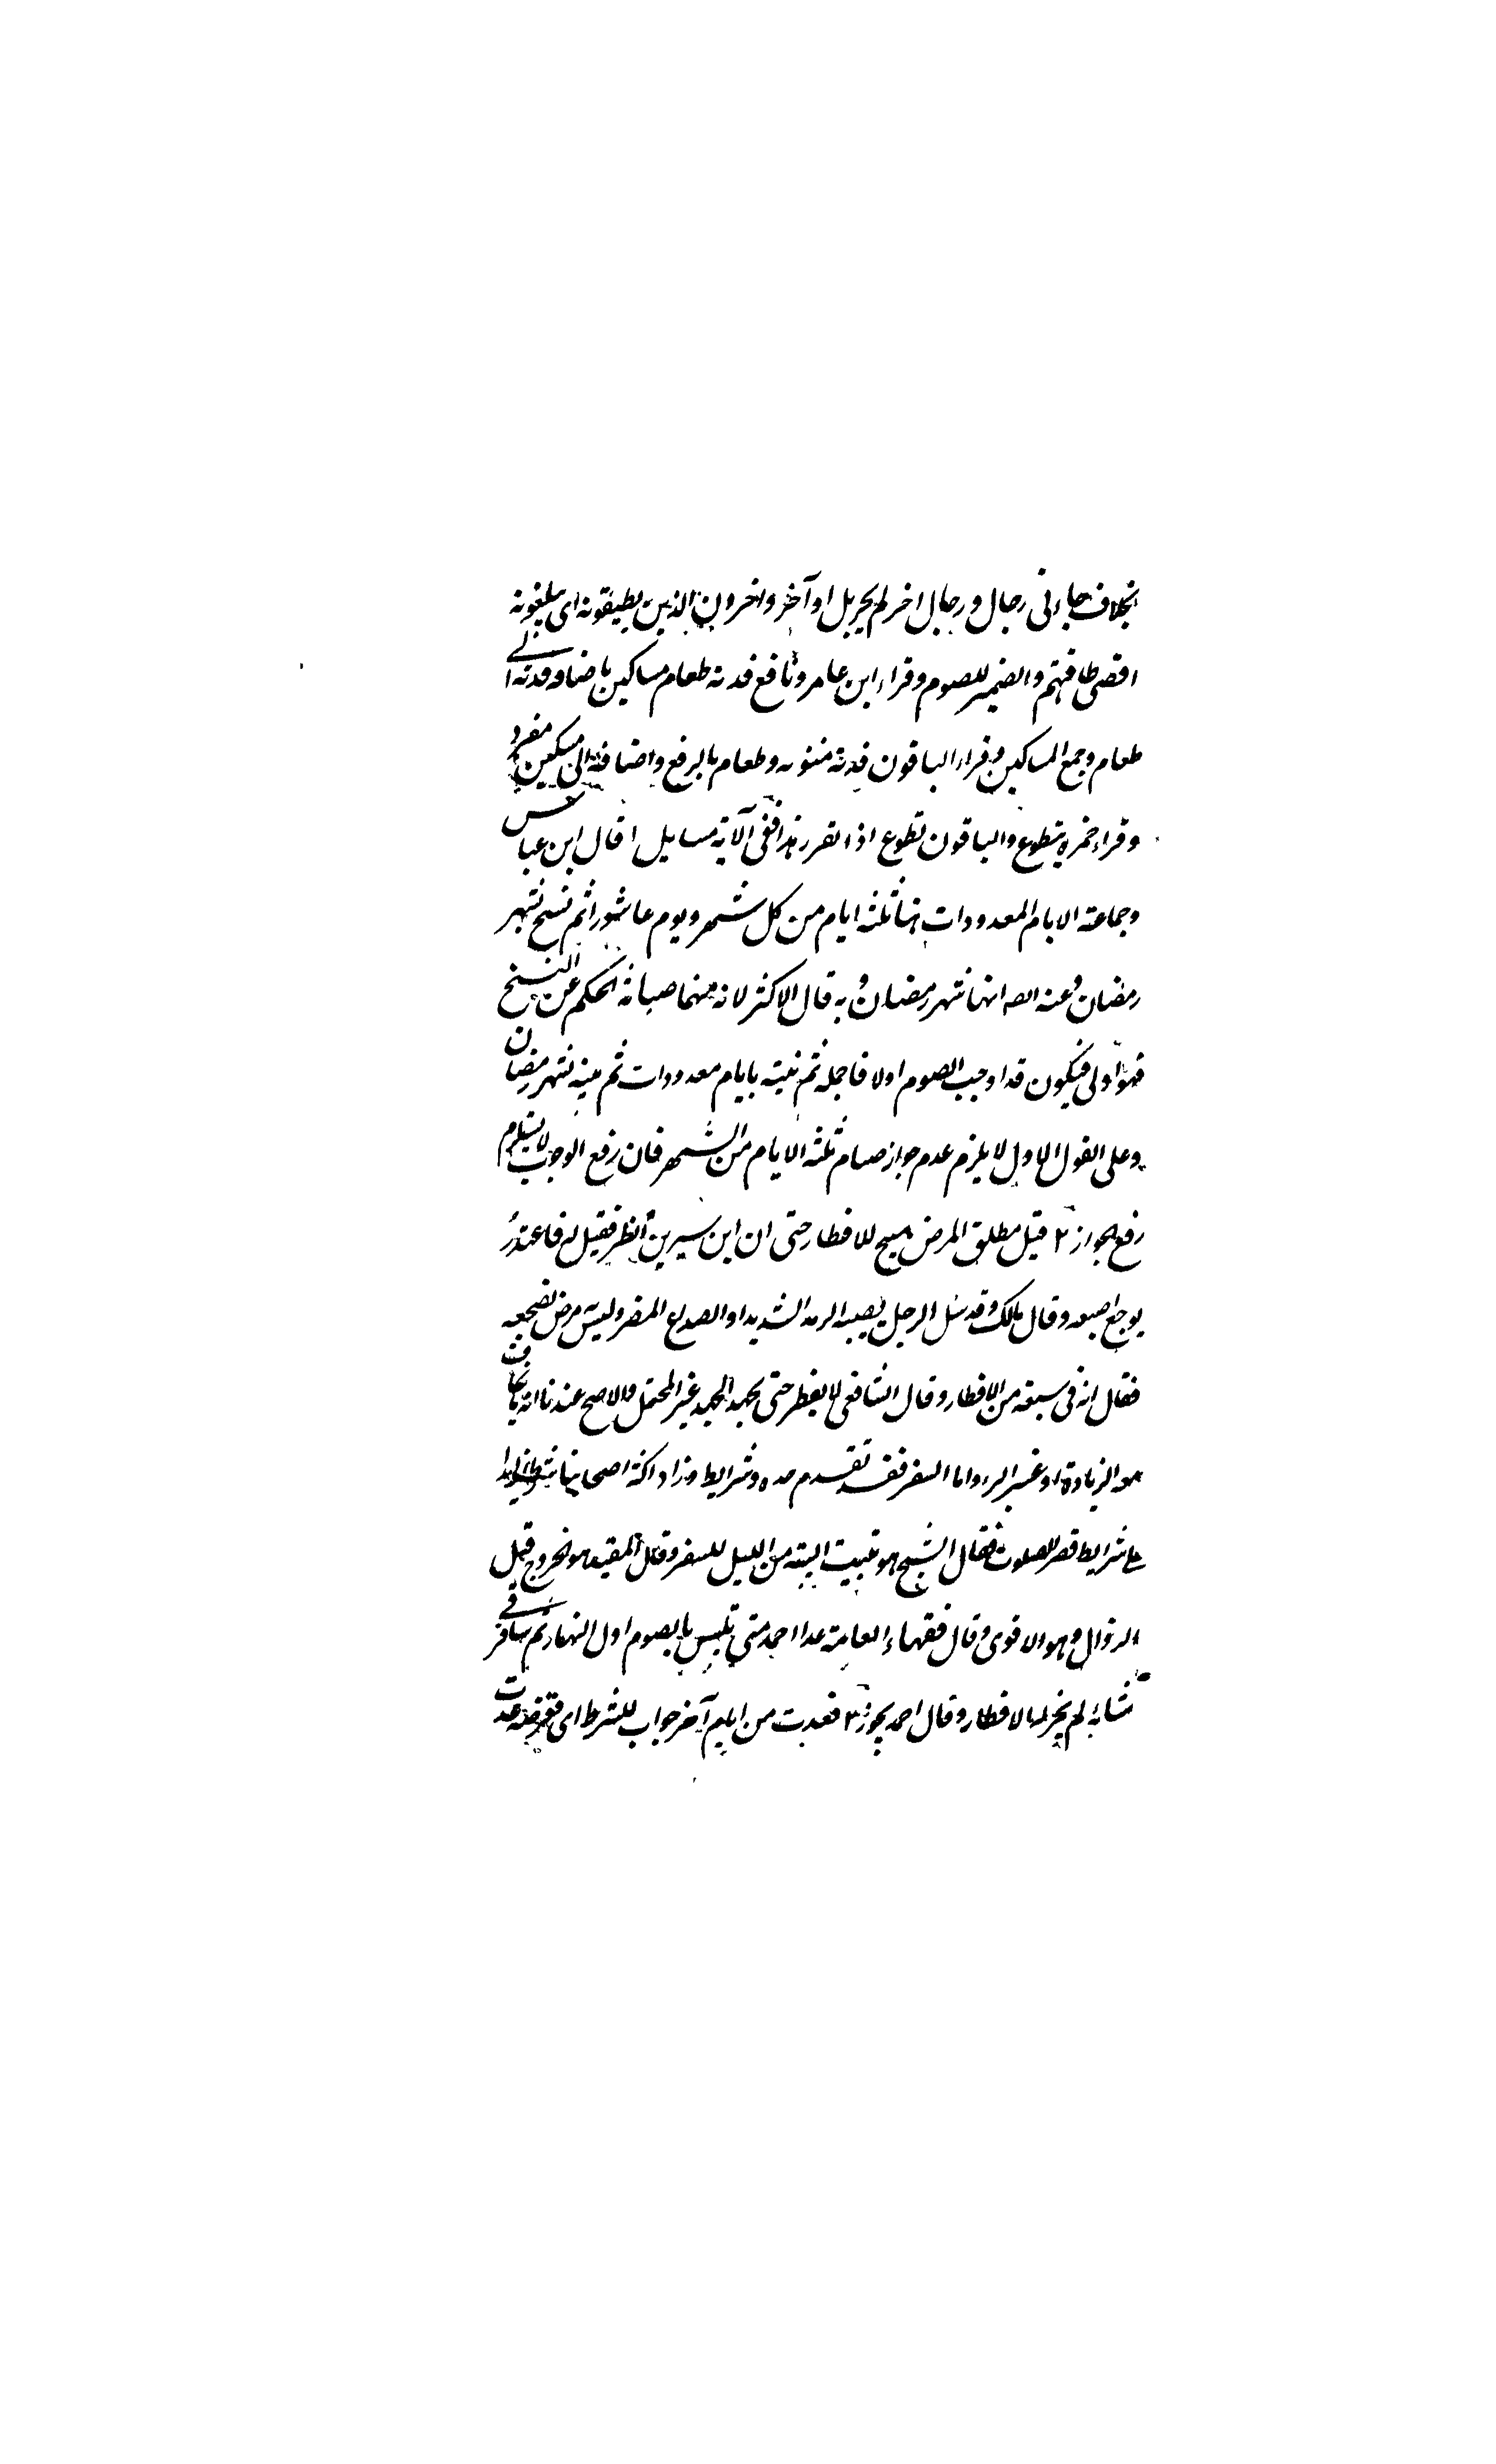 بخلاف جاءنى رجال و رجال اخر لم يجز بل او آخر و اخرون الذين يطيقونه اى يبلغونه
اقصى طاقتهم و الضمير للصوم و قراء ابن عامر و نافع فدية طعام مساكين باضافة فدية الى
طعام و جمع المساكين و قراء الباقون فدية منونه و طعام بالرفع و اضافته الى مسكين مفرد
و قراء حمزة يتطوع و الباقون تطوع اذا تقرر هذا ففى الآية مسايل ا قال ابن عباس
و جماعة الايام المعدودات انها ثلثة ايام من كل شهر و يوم عاشورا ثم نسخ بشهر
رمضان و عنه ايضا انها شهر رمضان و به قال الاكثر لانه مهما صيانة الحكم عن النسخ
فهو اولى فيكون قد اوجب الصوم اولا فاجمله ثم بينه بايام معدودات ثم بينه بشهر رمضان
و على القول الاول لا يلزم عدم جواز صيام ثلثة الايام من الشهر فان رفع الوجوب لا يستلزم
رفع الجواز ٢ قيل مطلق المرض مبيح للافطار حتى ان ابن سيرين افطر فقيل له فاعتذر
بوجع اصبعه و قال مالك و قد سئل الرجل يصيبه الرمد الشديد او الصداع المضر و ليس مرض يضجعه
فقال انه فى سعة من الافطار و قال الشافعى لا يفطر حتى يجهد الجهد غير المحتمل و الاصح عندنا انه ما يخاف
معه الزيادة او عسر البرء و اما السفر فقد تقدم حده و شرايطه و زاد اكثر اصحابنا شرطا زايدا
على شرايط قصر الصلوة فقال الشيخ هو تبييت النية من الليل للسفر و قال المفيد هو الخروج قبل
الزوال و هو الاقوى و قال فقهاء العامة عدا احمد متى تلبس بالصوم اول النهار ثم سافر فى
اثنائه لم يجز له الافطار و قال احمد يجوز ٣ فعدت من ايام آخر جواب للشرط اى فعدت